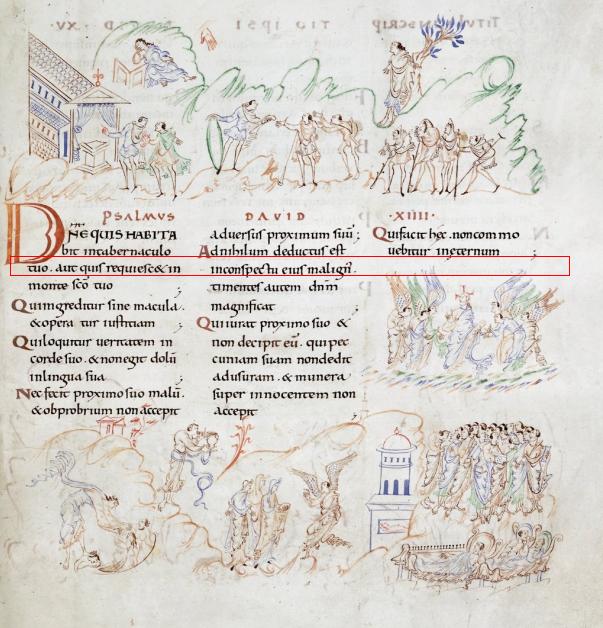 PSALMUS DAVID ·XIIII·
DNE QUIS HABITA
bit in tabernaculo
tuo. aut quis requiesc& in
monte sco tuo ;
Qui ingreditur sine macula.
& opera tur iustitiam ;
Qui loquitur veritatem in
corde suo. & non egit dolū
in lingua sua ;
Nec fecit proximo suo malū.
& obprobrium non accepit
adversus proximum suū;
Ad nihilum deductus est
in conspectu eius malign;.
timentes autem dnm
magnificat ;
Qui iurat proximo suo &
non decipit eū. qui pec
cuniam suam non dedit
ad usuram. & munera
super innocentem non
accepit ;
Qui facit hec. non commo
vebitur in eternum ;